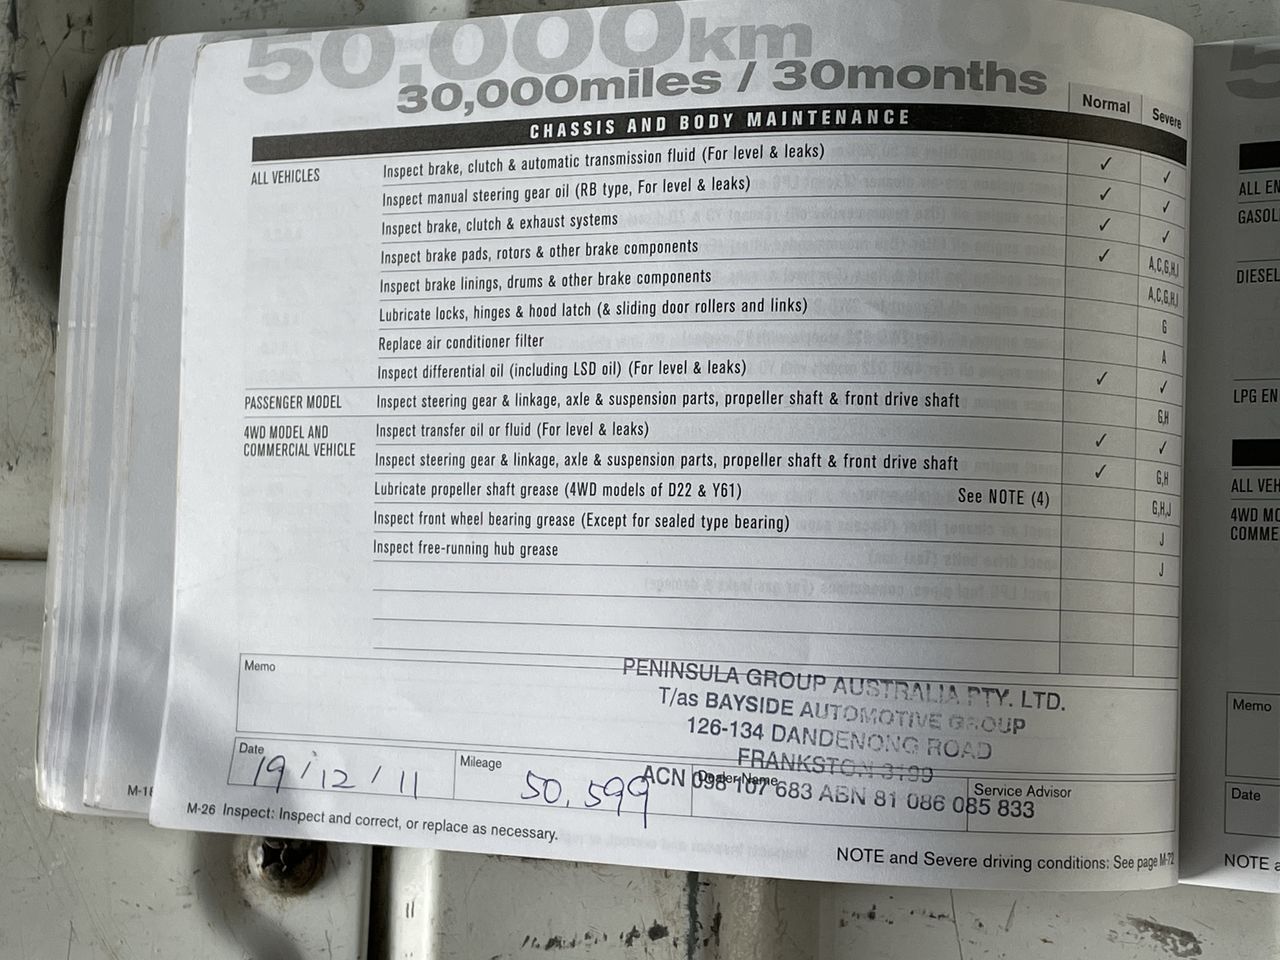 50,000km
30,000miles / 30months
Normal Severe
CHASSIS AND BODY MAINTENANCE
ALL VEHICLES Inspect brake, clutch & automatic transmission fluid (For level & leaks) ✓ ✓
Inspect manual steering gear oil (RB type, For level & leaks) ✓ ✓
Inspect brake, clutch & exhaust systems ✓ ✓
Inspect brake pads, rotors & other brake components ✓ A,C,G,H,I
Inspect brake linings, drums & other brake components A,C,G,H,I
Lubricate locks, hinges & hood latch (& sliding door rollers and links) G
Replace air conditioner filter A
Inspect differential oil (including LSD oil) (For level & leaks) ✓ ✓
PASSENGER MODEL Inspect steering gear & linkage, axle & suspension parts, propeller shaft & front drive shaft G,H
4WD MODEL AND
COMMERCIAL VEHICLE
Inspect transfer oil or fluid (For level & leaks) ✓ ✓
Inspect steering gear & linkage, axle & suspension parts, propeller shaft & front drive shaft ✓ G,H
Lubricate propeller shaft grease (4WD models of D22 & Y61) See NOTE (4) G,H,J
Inspect front wheel bearing grease (Except for sealed type bearing) J
Inspect free-running hub grease J
Memo
PENINSULA GROUP AUSTRALIA PTY. LTD.
T/as BAYSIDE AUTOMOTIVE GROUP
126-134 DANDENONG ROAD
FRANKSTON 3199
ACN 098 107 683 ABN 81 086 085 833
Date 19/12/11
Mileage 50,599
Dealer Name
Service Advisor
M-26 Inspect: Inspect and correct, or replace as necessary.
NOTE and Severe driving conditions: See page M-72
ALL EN
DIESEL
LPG EN
ALL VEH
4WD MO
COMME
Memo
Date
NOTE a